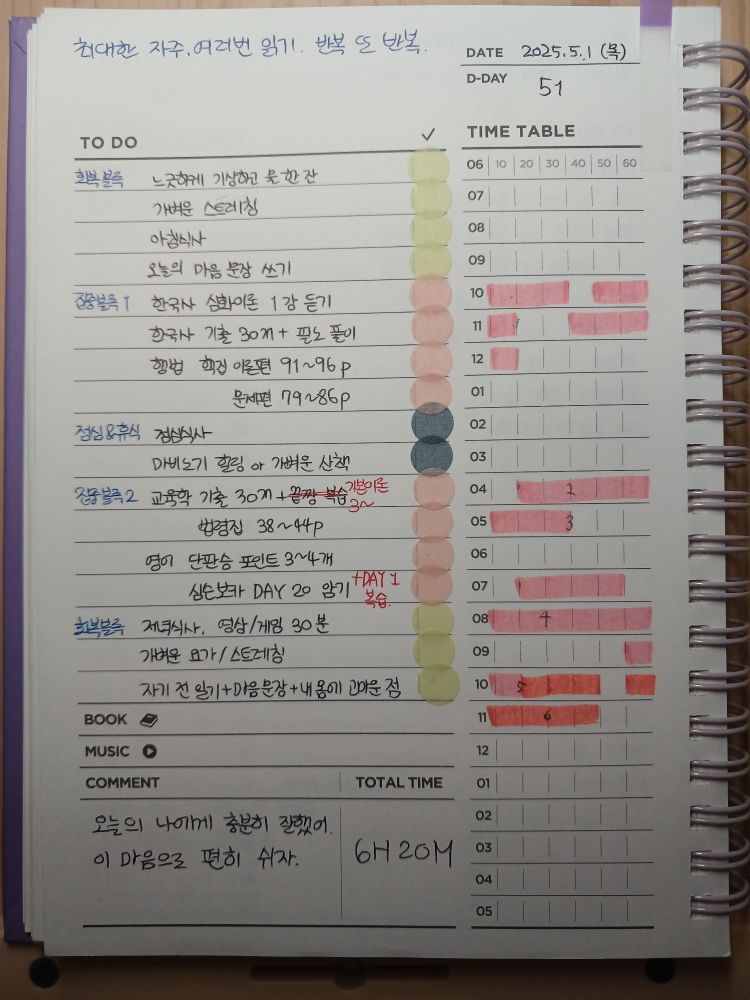 최대한 자주, 여러번 읽기. 반복 또 반복.
DATE 2025.5.1 (목)
D-DAY 51
TO DO ✓
회복블록 느긋하게 기상하고 물 한 잔
가벼운 스트레칭
아침식사
오늘의 마음 문장 쓰기
집중블록1 한국사 심화이론 1강 듣기
한국사 기출 30개 + 필노 풀이
행법 핵집 이론편 91~96p
문제편 79~86p
점심&휴식 점심식사
마비노기 힐링 or 가벼운 산책
집중블록2 교육학 기출 30개 + 끝짱 복습 기본이론 3~
법령집 38~44p
영어 단판승 포인트 3~4개
심슨보카 DAY 20 암기 +DAY 1 복습.
회복블록 저녁식사, 영상/게임 30분
가벼운 요가/스트레칭
자기 전 일기+마음문장+내 몸에 고마운 점
BOOK
MUSIC
COMMENT
오늘의 나에게 충분히 잘했어.
이 마음으로 편히 쉬자.
TOTAL TIME
6H 20M
TIME TABLE
06 10 20 30 40 50 60
07
08
09
10
11
12
01
02
03
04 2
05 3
06
07
08 4
09
10 5
11 6
12
01
02
03
04
05